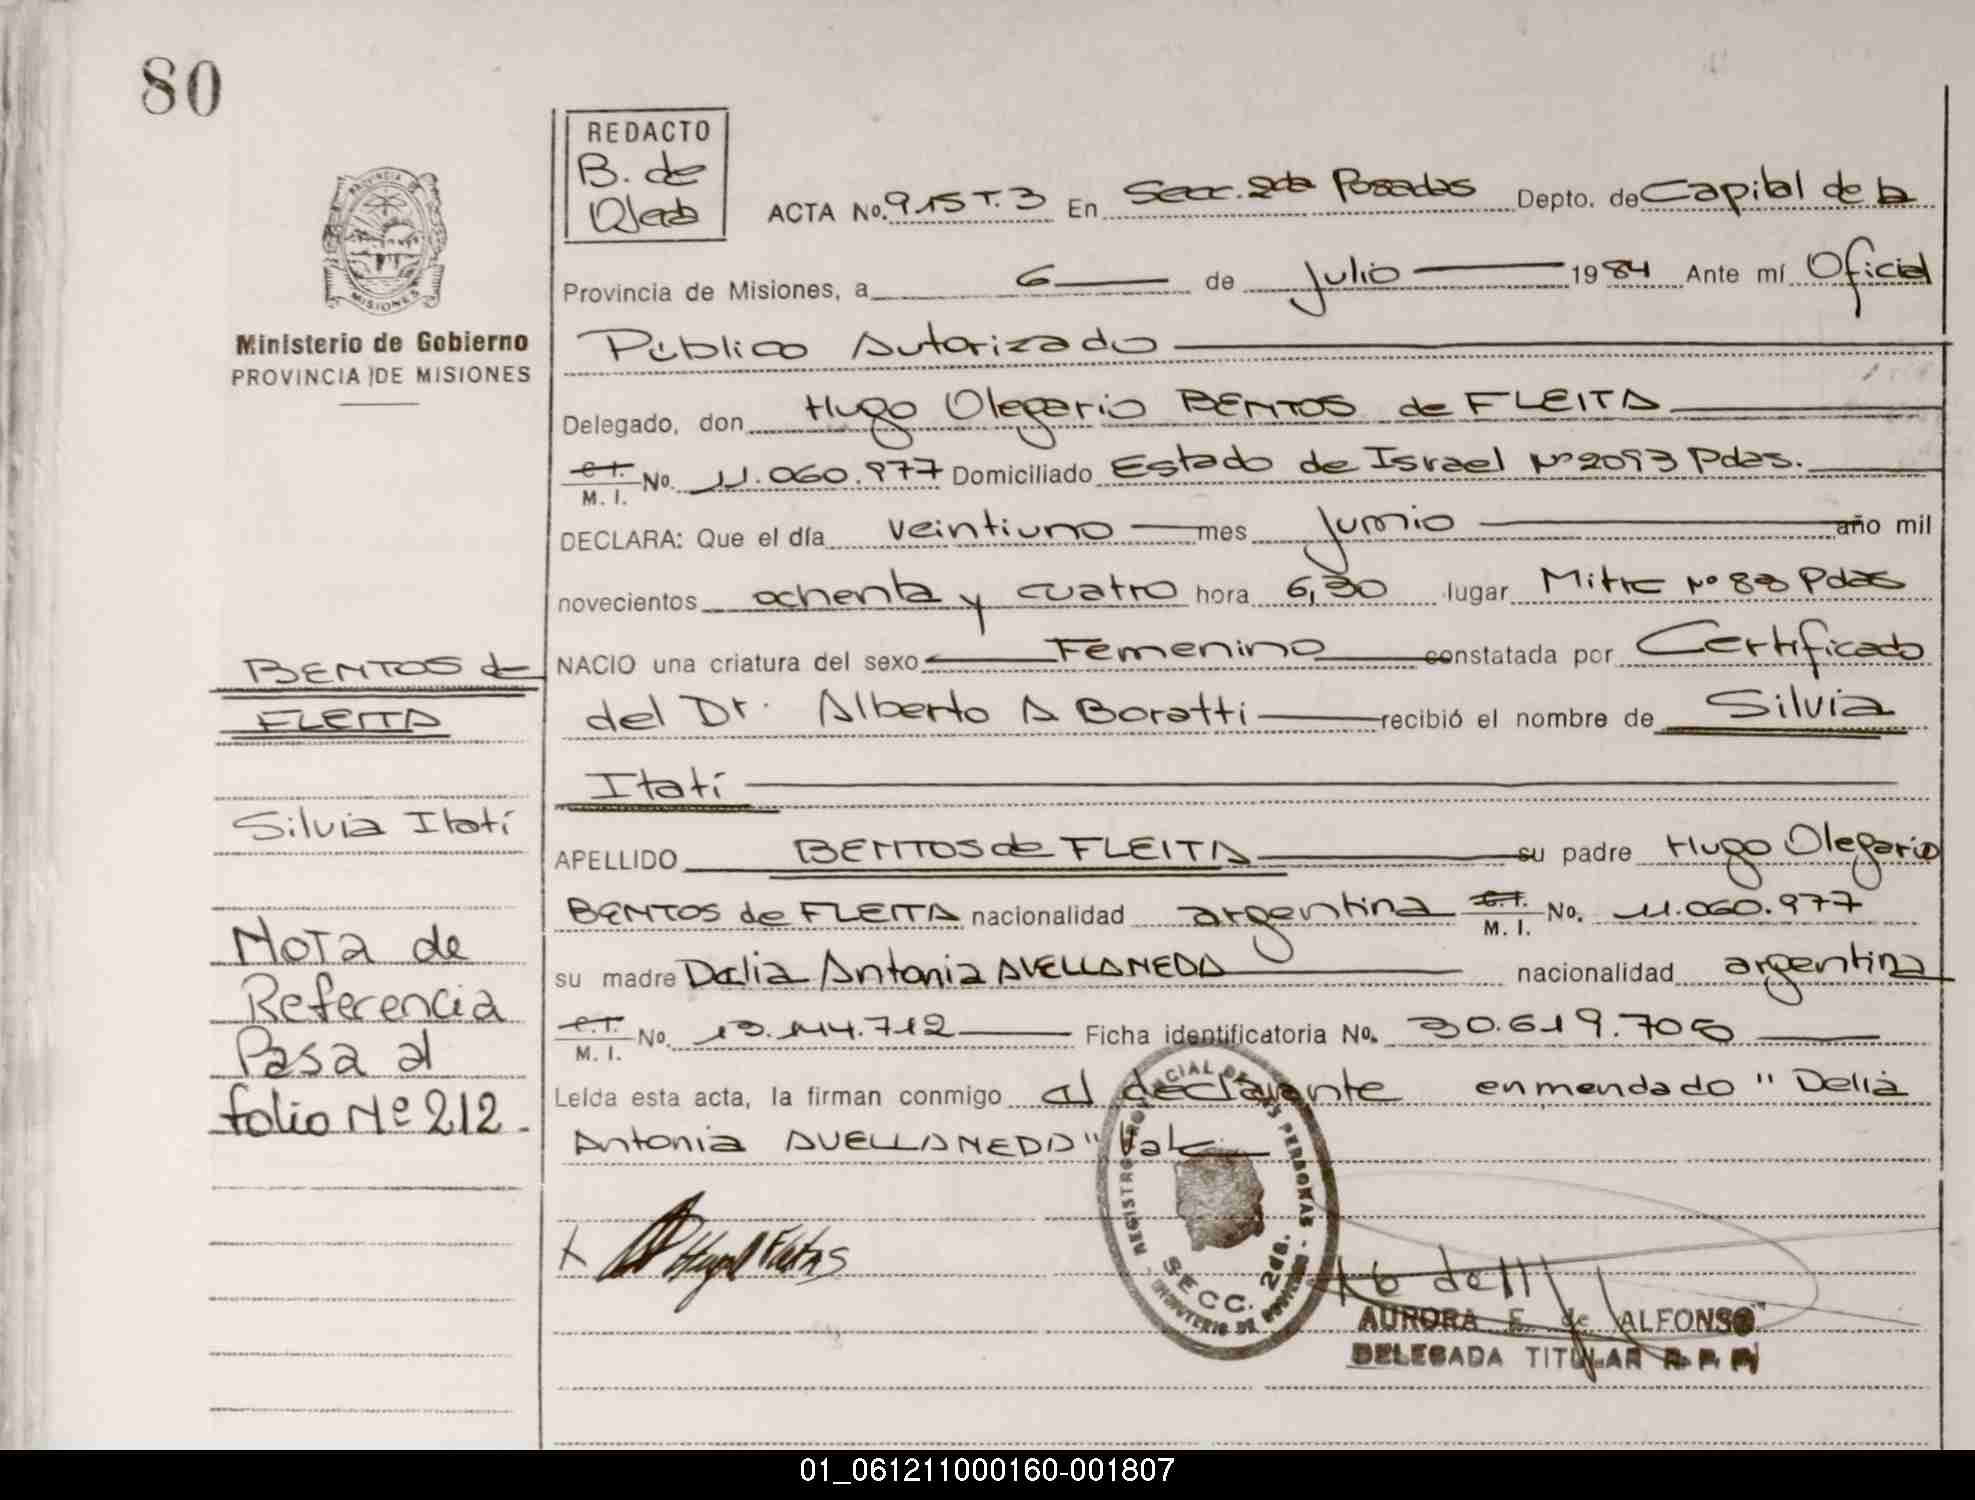 80
REDACTO
B. de
ACTA No. 915 T. 3 En Secc. 2da Posadas Depto. de Capital de la
Provincia de Misiones, a 6 de Julio 1984 Ante mí Oficial
Público Autorizado
Delegado, don Hugo Olegario BENTOS de FLEITA
C.I. M. I. No. 11.060.977 Domiciliado Estado de Israel Nº 2093 Pdas.
DECLARA: Que el día veintiuno mes Junio año mil
novecientos ochenta y cuatro hora 6,30 lugar Mitre Nº 88 Pdas
NACIO una criatura del sexo Femenino constatada por Certificado
del Dr. Alberto A Boratti recibió el nombre de Silvia
Itatí
APELLIDO BENTOS de FLEITA su padre Hugo Olegario
BENTOS de FLEITA nacionalidad argentina C.I. M. I. No. 11.060.977
su madre Delia Antonia AVELLANEDA nacionalidad argentina
C.I. M. I. No. 13.144.712 Ficha identificatoria No. 30.619.708
Leída esta acta, la firman conmigo el declarante enmendado "Delia
Antonia AVELLANEDA" Vale
PROVINCIA DE
MISIONES
Ministerio de Gobierno
PROVINCIA DE MISIONES
BENTOS de
FLEITA
Silvia Itatí
Nota de
Referencia
Pasa al
folio Nº 212.
REGISTRO PROVINCIAL DE LAS PERSONAS
SECC. 2da.
MINISTERIO DE GOBIERNO
AURORA E. de ALFONSO
DELEGADA TITULAR R. P. P.
01_061211000160-001807